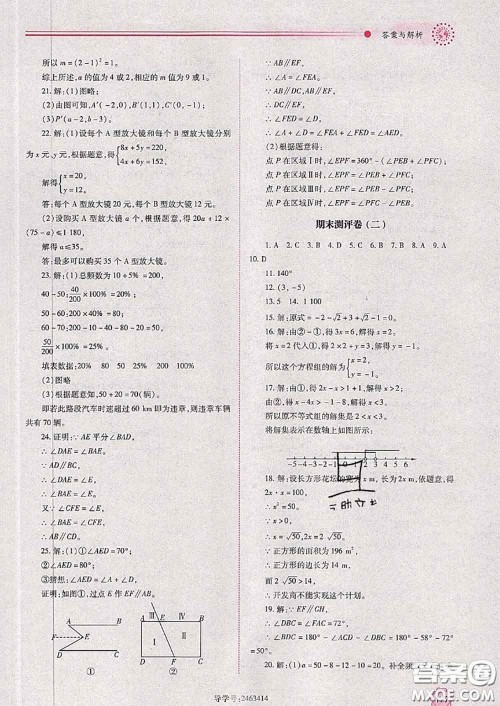 答案与解析
所以 m=(2-1)²=1.
综上所述,a 的值为 4 或 2,相应的 m 的值为
21.解:(1)图略;
(2)由图可知,A′(-2,0),B′(1,1),C′(3,-2);
(3)P′(a-2,b-3).
22.解:(1)设每个 A 型放大镜和每个 B 型放大镜分别
为 x 元,y 元,根据题意,得 {8x+5y=220,
4x+6y=152,
解得{x=20,
y=12.
答:每个 A 型放大镜 20 元,每个 B 型放大镜 12 元.
(2)设购买 A 型放大镜 a 个,根据题意,得 20a+12×
(75-a)≤1 180,
解得 a≤35.
答:最多可以购买 35 个 A 型放大镜.
23.解:(1)总频数为 10÷5%=200,
40-50:40/200×100%=20%;
50-60:200-10-40-100=50;
60-70:200-10-40-50=100;
50/200×100%=25%;
填表数据:20% 80 50 25% 200 100%
(2)图略
(3)根据题意知,50+20=70(辆).
即若此路段汽车时速超过 60 km 即为违章,则违章车辆
共有 70 辆.
24.证明:∵AE 平分∠BAD,
∴∠DAE=∠BAE.
∵AD∥BC,
∴∠DAE=∠E.
∴∠BAE=∠E.
又∵∠CFE=∠E,
∴∠BAE=∠CFE.
∴AB∥CD.
25.解:(1)①∠AED=70°;
②∠AED=80°;
③猜想:∠AED=∠A+∠D.
证明:如图,过点 E 作 EF∥AB,
A B
F E
D C
①
A E Ⅳ B
Ⅲ
Ⅱ Ⅰ
D F C
②
∵AB∥EF,
∴∠A=∠FEA.
∵AB∥DC,
∴DC∥EF,
∴∠D=∠FED.
∴∠A+∠D=∠FEA+∠FED=∠AED.
(2)根据题意得:
点 P 在区域Ⅰ时,∠EPF=360°-(∠PEB+∠PFC);
点 P 在区域Ⅱ时,∠EPF=∠PEB+∠PFC;
点 P 在区域Ⅲ时,∠EPF=∠PEB-∠PFC;
点 P 在区域Ⅳ时,∠EPF=∠PFC-∠PEB.
期末测评卷(二)
10. D
11.140°
12.(3,-5)
13.5 14.1 100
15.解:原式=-2-√2+3+√2=1.
16.解:由②-①,得 3x=6,解得 x=2.
将 x=2 代入①,得 2+y=1,解得 y=-1.
所以这个方程组的解为{x=2,
17.解:由①,得 2x-x>1+1,解得 x>2.
由②,得 x-4x>-1-8,解得 x<3.
所以原不等式组的解集是 2<x<3.
将解集表示在数轴上如图所示:
-5 -4 -3 -2 -1 0 1 2 3 4 5 6
18.解:设长方形花坛的宽为 x m,长为 2x m,依题意,得
2x·x=100,
∴x²=50.
∵x>0,
∴x=√50,2x=2√50.
∵正方形的面积为 196 m²,
∴正方形的边长为 14 m.
∵2√50>14,
∴开发商不能实现这个计划.
∴∠DBG=∠FAC=72°.
∴∠DBC=180°-∠DBG-
=50°.
20.解:(1)a=50-8-12-10=20.
导学号:2463414
答案圈
MXQE.COM